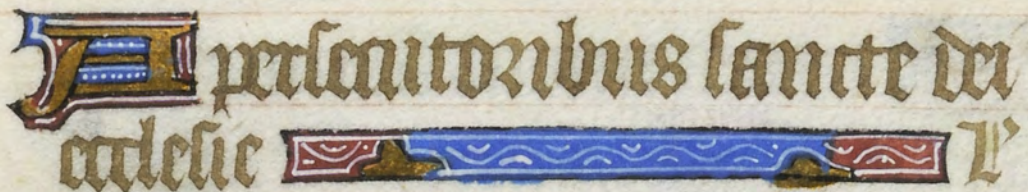 A persecutoribus sancte dei
ecclesie L